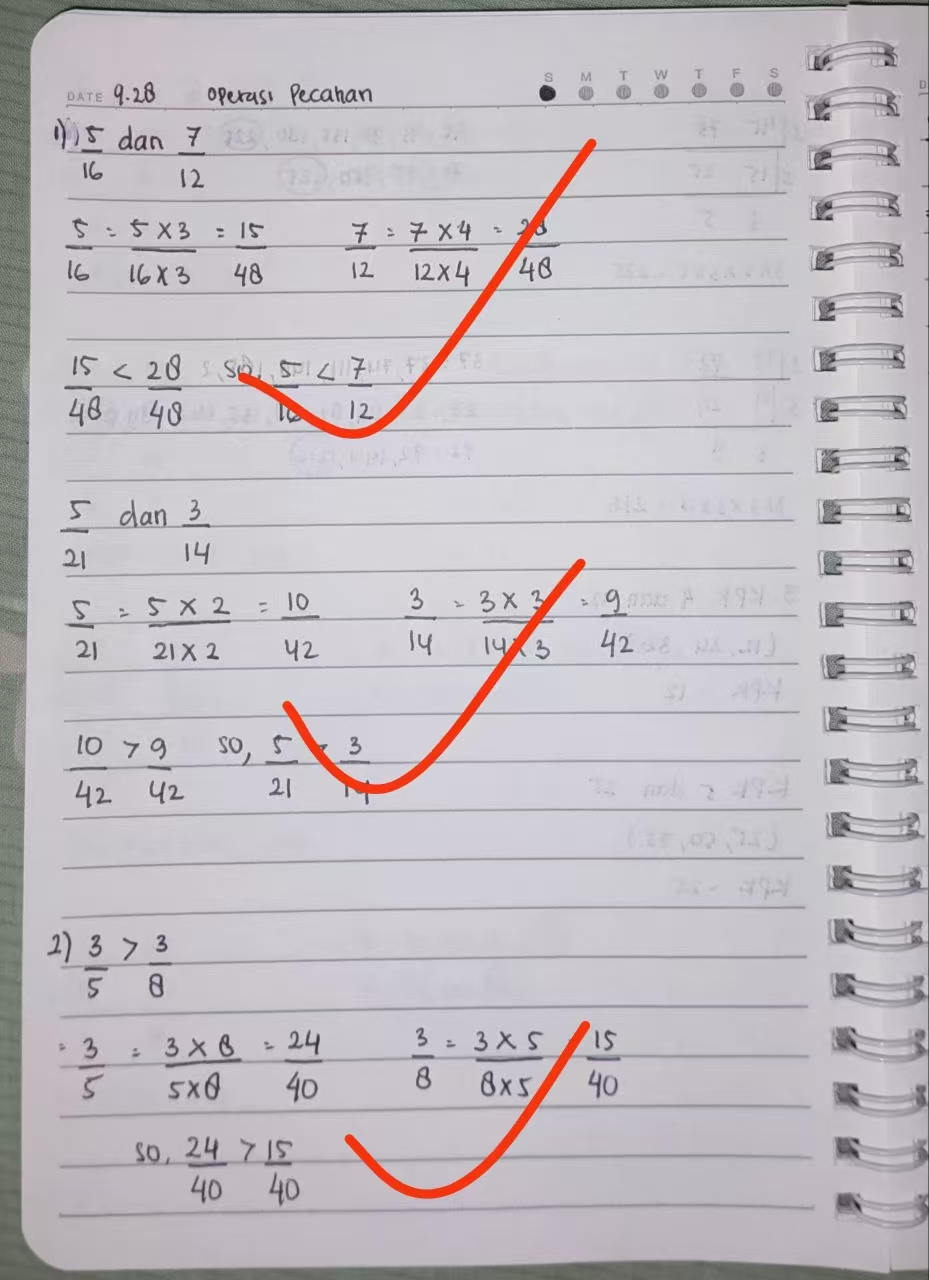 S M T W T F S
DATE 9.28 Operasi Pecahan
1) 5/16 dan 7/12
5/16 = 5 x 3/16 x 3 = 15/48 7/12 = 7 x 4/12 x 4 = 28/48
15/48 < 28/48 so, 5/16 < 7/12
5/21 dan 3/14
5/21 = 5 x 2/21 x 2 = 10/42 3/14 = 3 x 3/14 x 3 = 9/42
10/42 > 9/42 so, 5/21 > 3/14
2) 3/5 > 3/8
= 3/5 = 3 x 8/5 x 8 = 24/40 3/8 = 3 x 5/8 x 5 = 15/40
so, 24/40 > 15/40